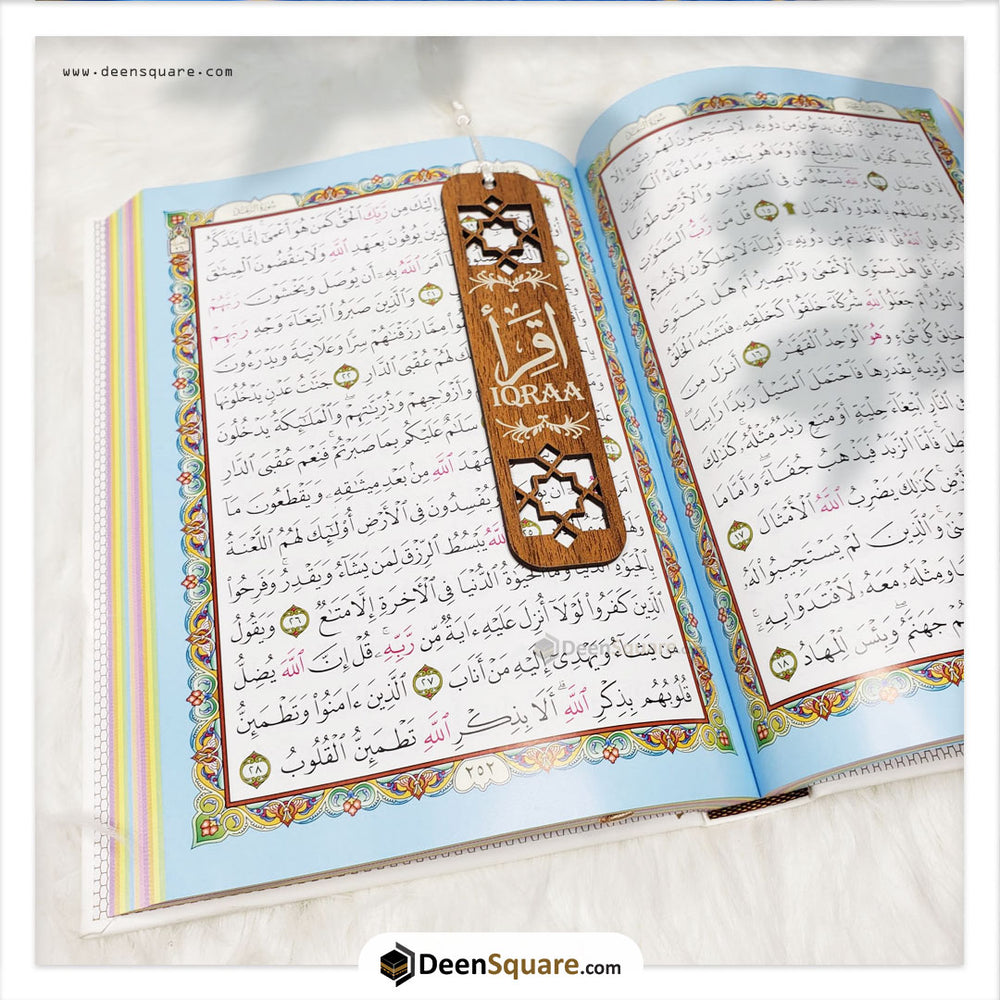 www.deensquare.com
سُورَةُ الرَّعْدِ
ٱلْحَقِّ وَٱلَّذِينَ يَدْعُونَ مِن دُونِهِۦ لَا يَسْتَجِيبُونَ لَهُم
كَبَٰسِطِ كَفَّيْهِ إِلَى ٱلْمَآءِ لِيَبْلُغَ فَاهُ وَمَا هُوَ بِبَٰلِغِهِۦ وَمَا دُعَآءُ ٱلْكَٰفِرِينَ
إِلَّا فِى ضَلَٰلٍ ١٤ وَلِلَّهِ يَسْجُدُ مَن فِى ٱلسَّمَٰوَٰتِ وَٱلْأَرْضِ طَوْعًا
وَكَرْهًا وَظِلَٰلُهُم بِٱلْغُدُوِّ وَٱلْءَاصَالِ ۩ ١٥ قُلْ مَن رَّبُّ
وَٱلْأَرْضِ قُلِ ٱللَّهُ قُلْ أَفَٱتَّخَذْتُم مِّن دُونِهِۦٓ أَوْلِيَآءَ لَا يَمْلِكُونَ لِأَنفُسِهِمْ
ضَرًّا قُلْ هَلْ يَسْتَوِى ٱلْأَعْمَىٰ وَٱلْبَصِيرُ أَمْ هَلْ تَسْتَوِى
وَٱلنُّورُ أَمْ جَعَلُوا۟ لِلَّهِ شُرَكَآءَ خَلَقُوا۟ كَخَلْقِهِۦ فَتَشَٰبَهَ ٱلْخَلْقُ
خَٰلِقُ كُلِّ شَىْءٍ وَهُوَ ٱلْوَٰحِدُ ٱلْقَهَّٰرُ ١٦ أَنزَلَ مِنَ
أَوْدِيَةٌۢ بِقَدَرِهَا فَٱحْتَمَلَ ٱلسَّيْلُ زَبَدًا رَّابِيًا
فِى ٱلنَّارِ ٱبْتِغَآءَ حِلْيَةٍ أَوْ مَتَٰعٍ زَبَدٌ مِّثْلُهُۥ كَذَٰلِكَ
فَأَمَّا ٱلزَّبَدُ فَيَذْهَبُ جُفَآءً وَأَمَّا مَا
كَذَٰلِكَ يَضْرِبُ ٱللَّهُ ٱلْأَمْثَالَ ١٧
وَٱلَّذِينَ لَمْ يَسْتَجِيبُوا۟ لَهُۥ
وَمِثْلَهُۥ مَعَهُۥ لَٱفْتَدَوْا۟ بِهِۦٓ
جَهَنَّمُ وَبِئْسَ ٱلْمِهَادُ ١٨
سُورَةُ الرَّعْدِ
إِلَيْكَ مِن رَّبِّكَ ٱلْحَقُّ كَمَنْ هُوَ أَعْمَىٰٓ إِنَّمَا يَتَذَكَّرُ
يُوفُونَ بِعَهْدِ ٱللَّهِ وَلَا يَنقُضُونَ ٱلْمِيثَٰقَ
أَمَرَ ٱللَّهُ بِهِۦٓ أَن يُوصَلَ وَيَخْشَوْنَ رَبَّهُمْ
٢١ وَٱلَّذِينَ صَبَرُوا۟ ٱبْتِغَآءَ وَجْهِ رَبِّهِمْ
مِمَّا رَزَقْنَٰهُمْ سِرًّا وَعَلَانِيَةً وَيَدْرَءُونَ
لَهُمْ عُقْبَى ٱلدَّارِ ٢٢ جَنَّٰتُ عَدْنٍ يَدْخُلُونَهَا
وَأَزْوَٰجِهِمْ وَذُرِّيَّٰتِهِمْ وَٱلْمَلَٰٓئِكَةُ يَدْخُلُونَ
سَلَٰمٌ عَلَيْكُم بِمَا صَبَرْتُمْ فَنِعْمَ عُقْبَى ٱلدَّارِ
عَهْدَ ٱللَّهِ مِنۢ بَعْدِ مِيثَٰقِهِۦ وَيَقْطَعُونَ مَآ
أَمَرَ أَن وَيُفْسِدُونَ فِى ٱلْأَرْضِ أُو۟لَٰٓئِكَ لَهُمُ ٱللَّعْنَةُ
وَلَهُمْ ٢٥ ٱللَّهُ يَبْسُطُ ٱلرِّزْقَ لِمَن يَشَآءُ وَيَقْدِرُ وَفَرِحُوا۟
بِٱلْحَيَوٰةِ ٱلدُّنْيَا وَمَا ٱلْحَيَوٰةُ ٱلدُّنْيَا فِى ٱلْءَاخِرَةِ إِلَّا مَتَٰعٌ ٢٦ وَيَقُولُ
ٱلَّذِينَ كَفَرُوا۟ لَوْلَآ أُنزِلَ عَلَيْهِ ءَايَةٌ مِّن رَّبِّهِۦ قُلْ إِنَّ ٱللَّهَ يُضِلُّ
مَن يَشَآءُ وَيَهْدِىٓ إِلَيْهِ مَنْ أَنَابَ ٢٧ ٱلَّذِينَ ءَامَنُوا۟ وَتَطْمَئِنُّ
قُلُوبُهُم بِذِكْرِ ٱللَّهِ أَلَا بِذِكْرِ ٱللَّهِ تَطْمَئِنُّ ٱلْقُلُوبُ ٢٨
٢٥٢
اقرأ
IQRAA
DeenSquare.com
DeenSquare.com